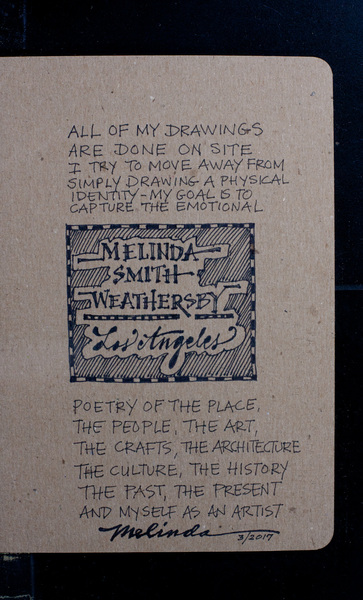 ALL OF MY DRAWINGS
ARE DONE ON SITE
I TRY TO MOVE AWAY FROM
SIMPLY DRAWING A PHYSICAL
IDENTITY - MY GOAL IS TO
CAPTURE THE EMOTIONAL
MELINDA
SMITH
WEATHERSBY
Los Angeles
POETRY OF THE PLACE,
THE PEOPLE, THE ART,
THE CRAFTS, THE ARCHITECTURE
THE CULTURE, THE HISTORY
THE PAST, THE PRESENT
AND MYSELF AS AN ARTIST
Melinda 3/2017